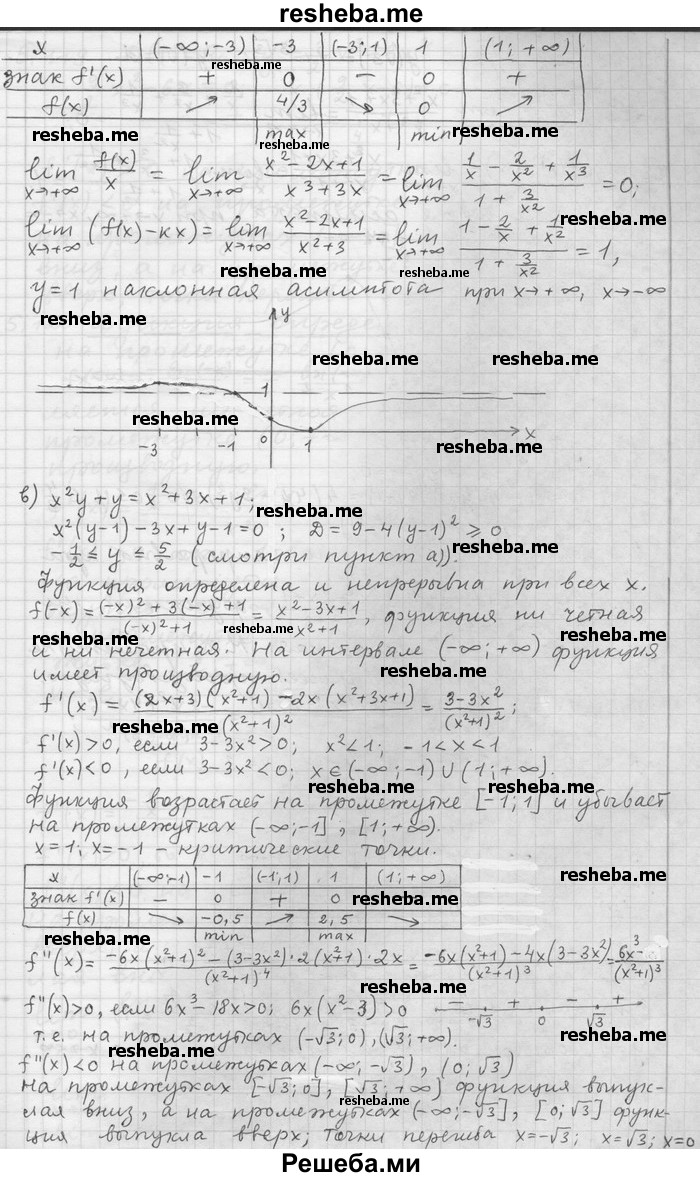 resheba.me
x | (-∞;-3) | -3 | (-3;1) | 1 | (1;+∞)
resheba.me
знак f'(x) | + | 0 | - | 0 | +
f(x) | ↗ | 4/3 | ↘ | 0 | ↗
resheba.me resheba.me resheba.me
max min
lim x→+∞ f(x)/x = lim x→+∞ (x²-2x+1)/(x³+3x) = lim x→+∞ (1/x - 2/x² + 1/x³)/(1 + 3/x²) = 0;
resheba.me
lim x→+∞ (f(x)-кx) = lim x→+∞ (x²-2x+1)/(x²+3) = lim x→+∞ (1 - 2/x + 1/x²)/(1 + 3/x²) = 1,
resheba.me resheba.me
y=1 наклонная асимптота при x→+∞, x→-∞
resheba.me
y
resheba.me resheba.me
1
resheba.me
-3 -1 0 1 x
resheba.me
в) x²y+y=x²+3x+1;
resheba.me
x²(y-1)-3x+y-1=0 ; D=9-4(y-1)²≥0
-1/2 ≤ y ≤ 5/2 (смотри пункт а)).
resheba.me
Функция определена и непрерывна при всех x.
f(-x) = ((-x)²+3(-x)+1)/((-x)²+1) = (x²-3x+1)/(x²+1), функция ни четная
resheba.me resheba.me resheba.me
и ни нечетная. На интервале (-∞;+∞) функция
имеет производную.
resheba.me
f'(x) = ((2x+3)(x²+1)-2x(x²+3x+1))/(x²+1)² = (3-3x²)/(x²+1)²;
resheba.me resheba.me
f'(x)>0, если 3-3x²>0; x²<1; -1<x<1
f'(x)<0, если 3-3x²<0; x∈(-∞;-1)∪(1;+∞).
resheba.me
Функция возрастает на промежутке [-1;1] и убывает
на промежутках (-∞;-1], [1;+∞).
resheba.me
x=1; x=-1 - критические точки.
x | (-∞;-1) | -1 | (-1;1) | 1 | (1;+∞)
resheba.me
знак f'(x) | - | 0 | + | 0
resheba.me
f(x) | ↘ | -0,5 | ↗ | 2,5 | ↘
min max
resheba.me
f''(x) = (-6x(x²+1)²-(3-3x²)·2(x²+1)·2x)/(x²+1)⁴ = (-6x(x²+1)-4x(3-3x²))/(x²+1)³ = 6x³-/(x²+1)³
resheba.me
f''(x)>0, если 6x³-18x>0; 6x(x²-3)>0
- + - +
-√3 0 √3
resheba.me
т.е. на промежутках (-√3;0), (√3;+∞).
resheba.me
f''(x)<0 на промежутках (-∞;-√3), (0;√3)
на промежутках [-√3;0], [√3;+∞) функция выпук-
resheba.me
лая вниз, а на промежутках (-∞;-√3], [0;√3] функ-
resheba.me
ция выпукла вверх; точки перегиба x=-√3; x=√3; x=0
Решеба.ми